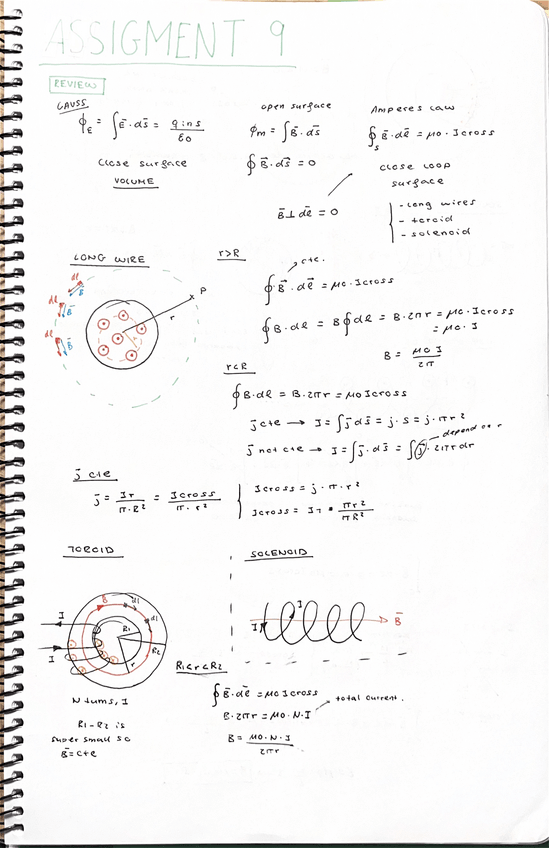 ASSIGMENT 9
REVIEW
GAUSS
ϕE = ∫E⃗·ds⃗ = q ins / ε0
Close surface
VOLUME
open surface
ϕm = ∫B⃗·ds⃗
∮B⃗·ds⃗ = 0
B⃗ ⊥ dl⃗ = 0
Amperes law
∮s B⃗·dl⃗ = μ0·Icross
close loop
surface
- long wires
- toroid
- solenoid
LONG WIRE
dl
B⃗
dl
B⃗
dl
B⃗
r
P
r>R
cte.
∮B⃗·dl⃗ = μ0·Icross
∮B·dl = B∮dl = B·2πr = μ0·Icross
= μ0·I
B = μ0 I / 2π
r<R
∮B·dl = B·2πr = μ0Icross
j⃗ cte → I = ∫j⃗ds⃗ = j·S = j·πr²
j⃗ not cte → I = ∫j⃗·ds⃗ = ∫j·2πrdr
depend on r
j⃗ cte
j⃗ = IT / π·R² = Icross / π·r²
Icross = j·π·r²
Icross = IT · πr² / πR²
TOROID
B⃗
dl
dl
I
I
R1
R2
r
N turns, I
R1-R2 is
super small so
B⃗ = cte
SOLENOID
I
I
B⃗
R1<r<R2
∮B⃗·dl⃗ = μ0Icross
B·2πr = μ0·N·I
total current.
B = μ0·N·I / 2πr